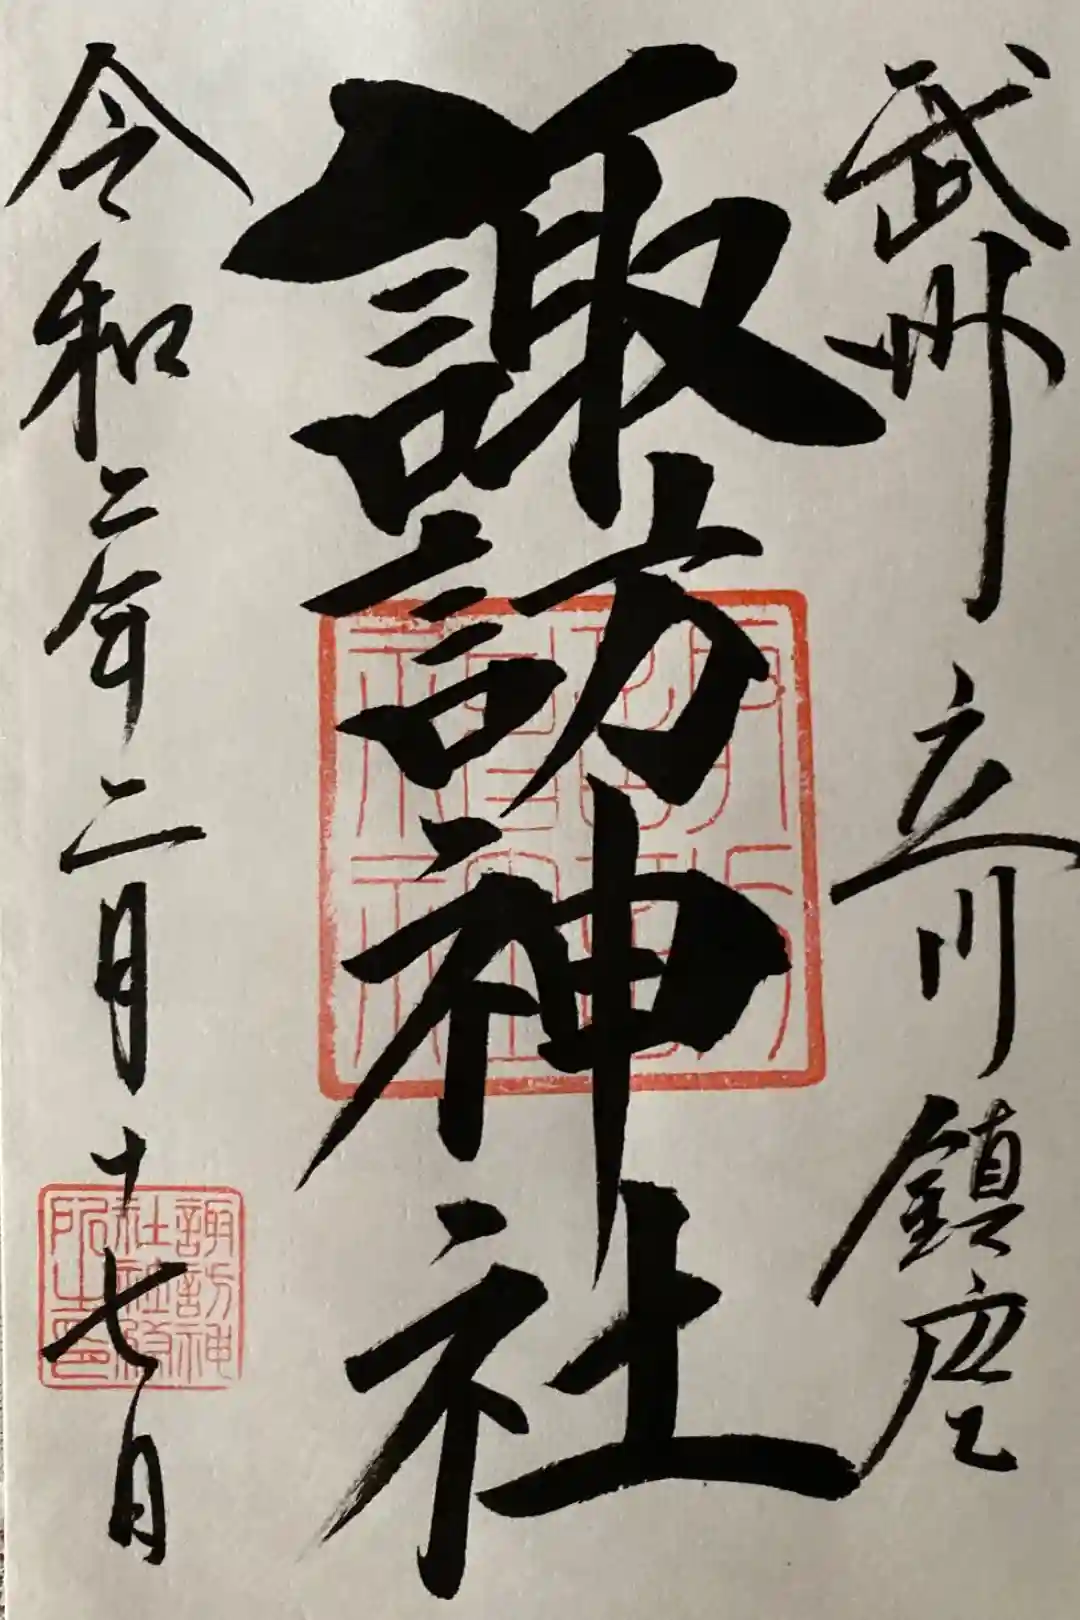 武州立川鎮座
諏訪神社
諏訪神社
諏訪神
社社務
所之印
令和二年二月十七日